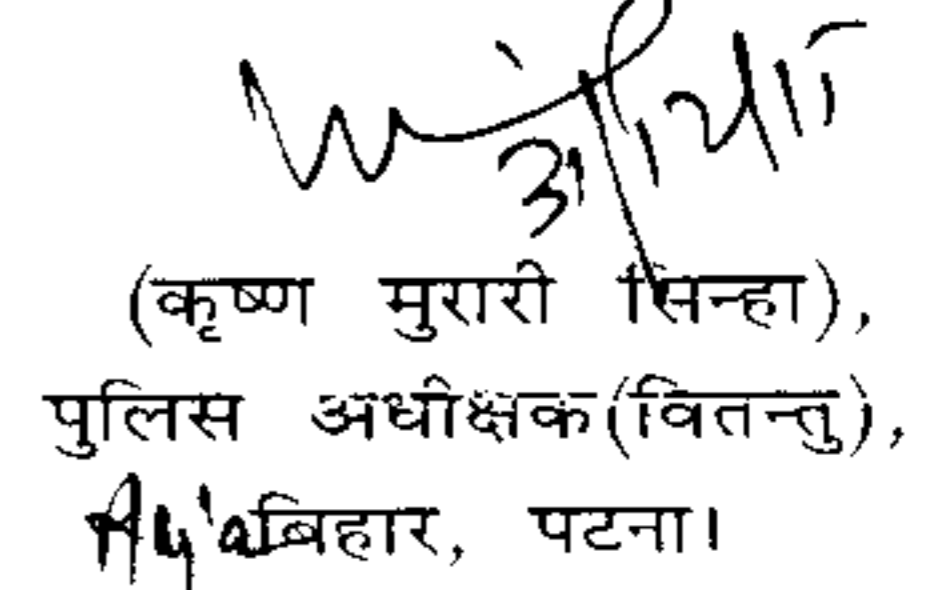 (कृष्ण मुरारी सिन्हा),
पुलिस अधीक्षक(वितन्तु),
बिहार, पटना।